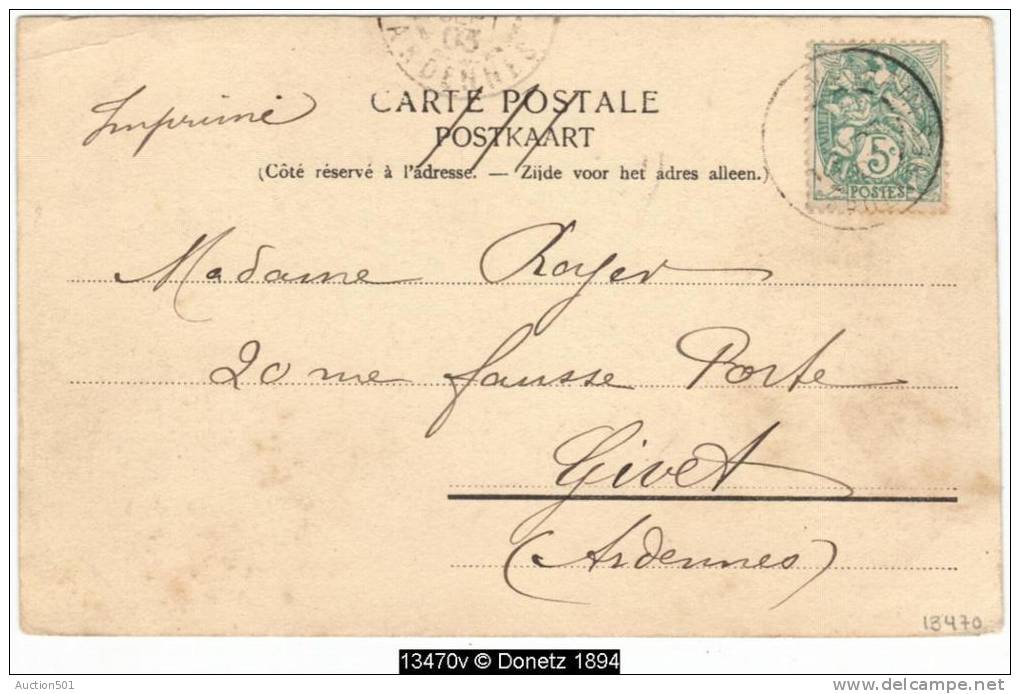 03
ARDENNES
Imprimé
CARTE POSTALE
POSTKAART
(Côté réservé à l'adresse. — Zijde voor het adres alleen.)
5c
POSTES
Madame Royer
20 rue fausse Porte
Givet
(Ardennes)
13470
13470v © Donetz 1894
Auction501
delcampe.net